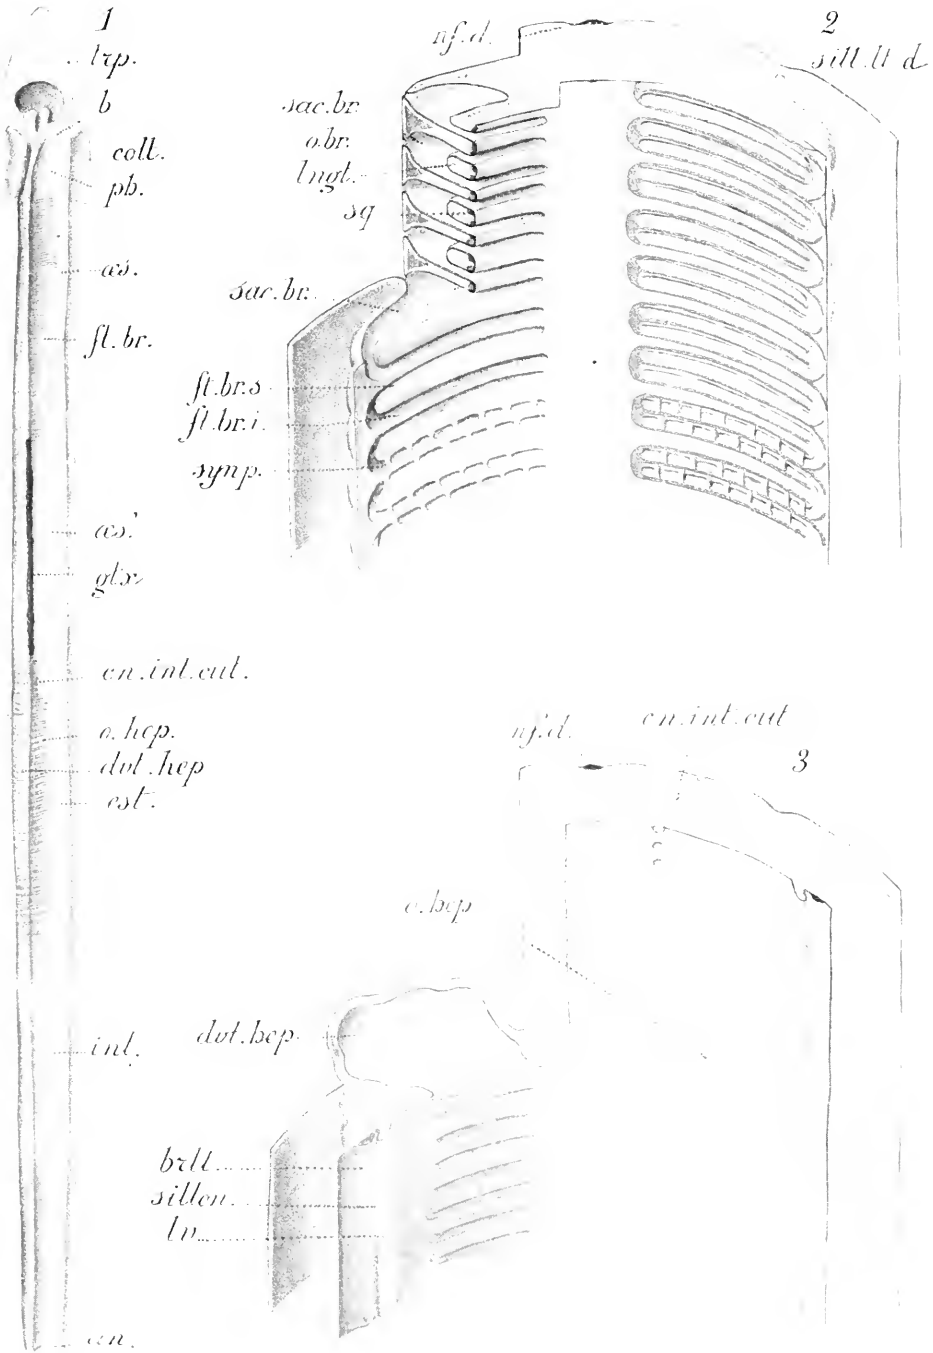 1
trp.
b
coll.
ph.
œs.
fl.br.
œs'.
gtx
cn.int.cut.
o.hep.
dvt.hep
est.
int.
an.
2
nf.d.
sill.lt d
sac.br.
o.br.
lngt.
sq
sac.br.
ft.br.s
ft.br.i.
synp.
3
nf.d.
cn.int.cut
c.hep
dvt.hep.
brll
sillcn.
lv